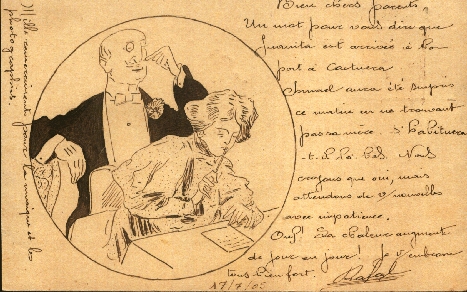 Bien chers parents,
Un mot pour vous dire que
Juanita est arrivée à bon
port à
aura été surpris
ce matin en ne trouvant
pas sa mère. S'habituera
-t-il là bas. Nous
croyons que oui, mais
attendons de v/ nouvelles
avec impatience.
Ouf! La chaleur augmente
de jour en jour! Je v/ embrasse
tous bien fort.
17/7/05
Mille remerciements pour la musique et les
photographies.